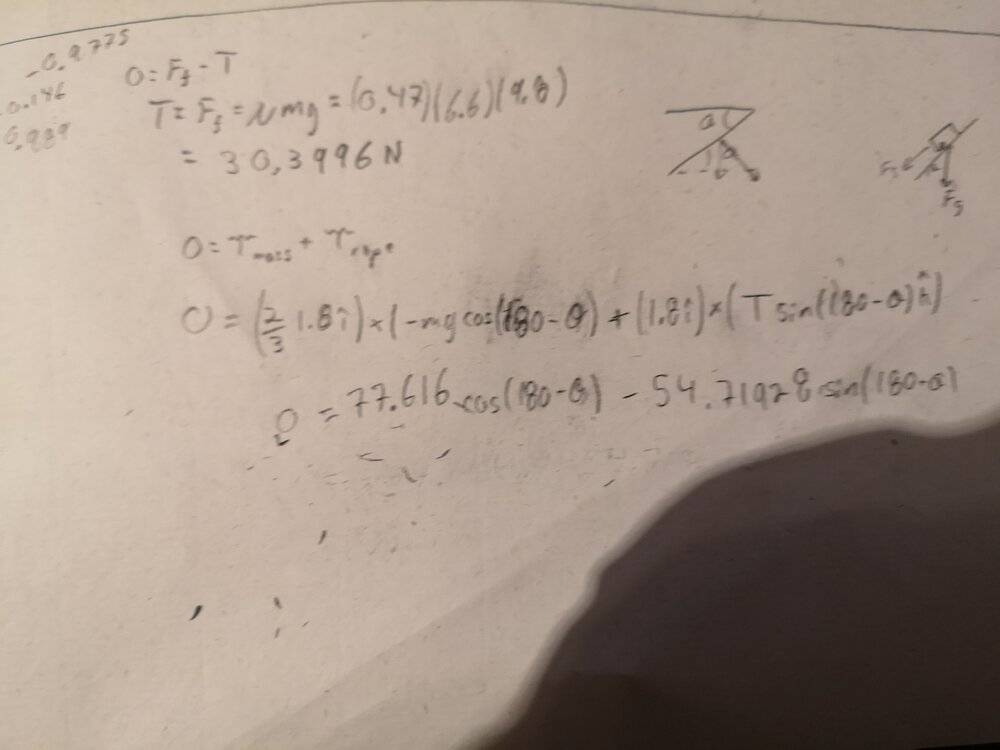 -0.9775
0.146
0.989
0 = Ff - T
T = Ff = μmg = (0.47)(6.6)(9.8)
= 30,3996 N
θ
θ
Fg
0 = τmass + τrope
0 = (2/3 1.8î) × (-mg cos(180-θ) + (1.8î) × (T sin(180-θ)n̂)
0 = 77.616 cos(180-θ) - 54.71928 sin(180-θ)